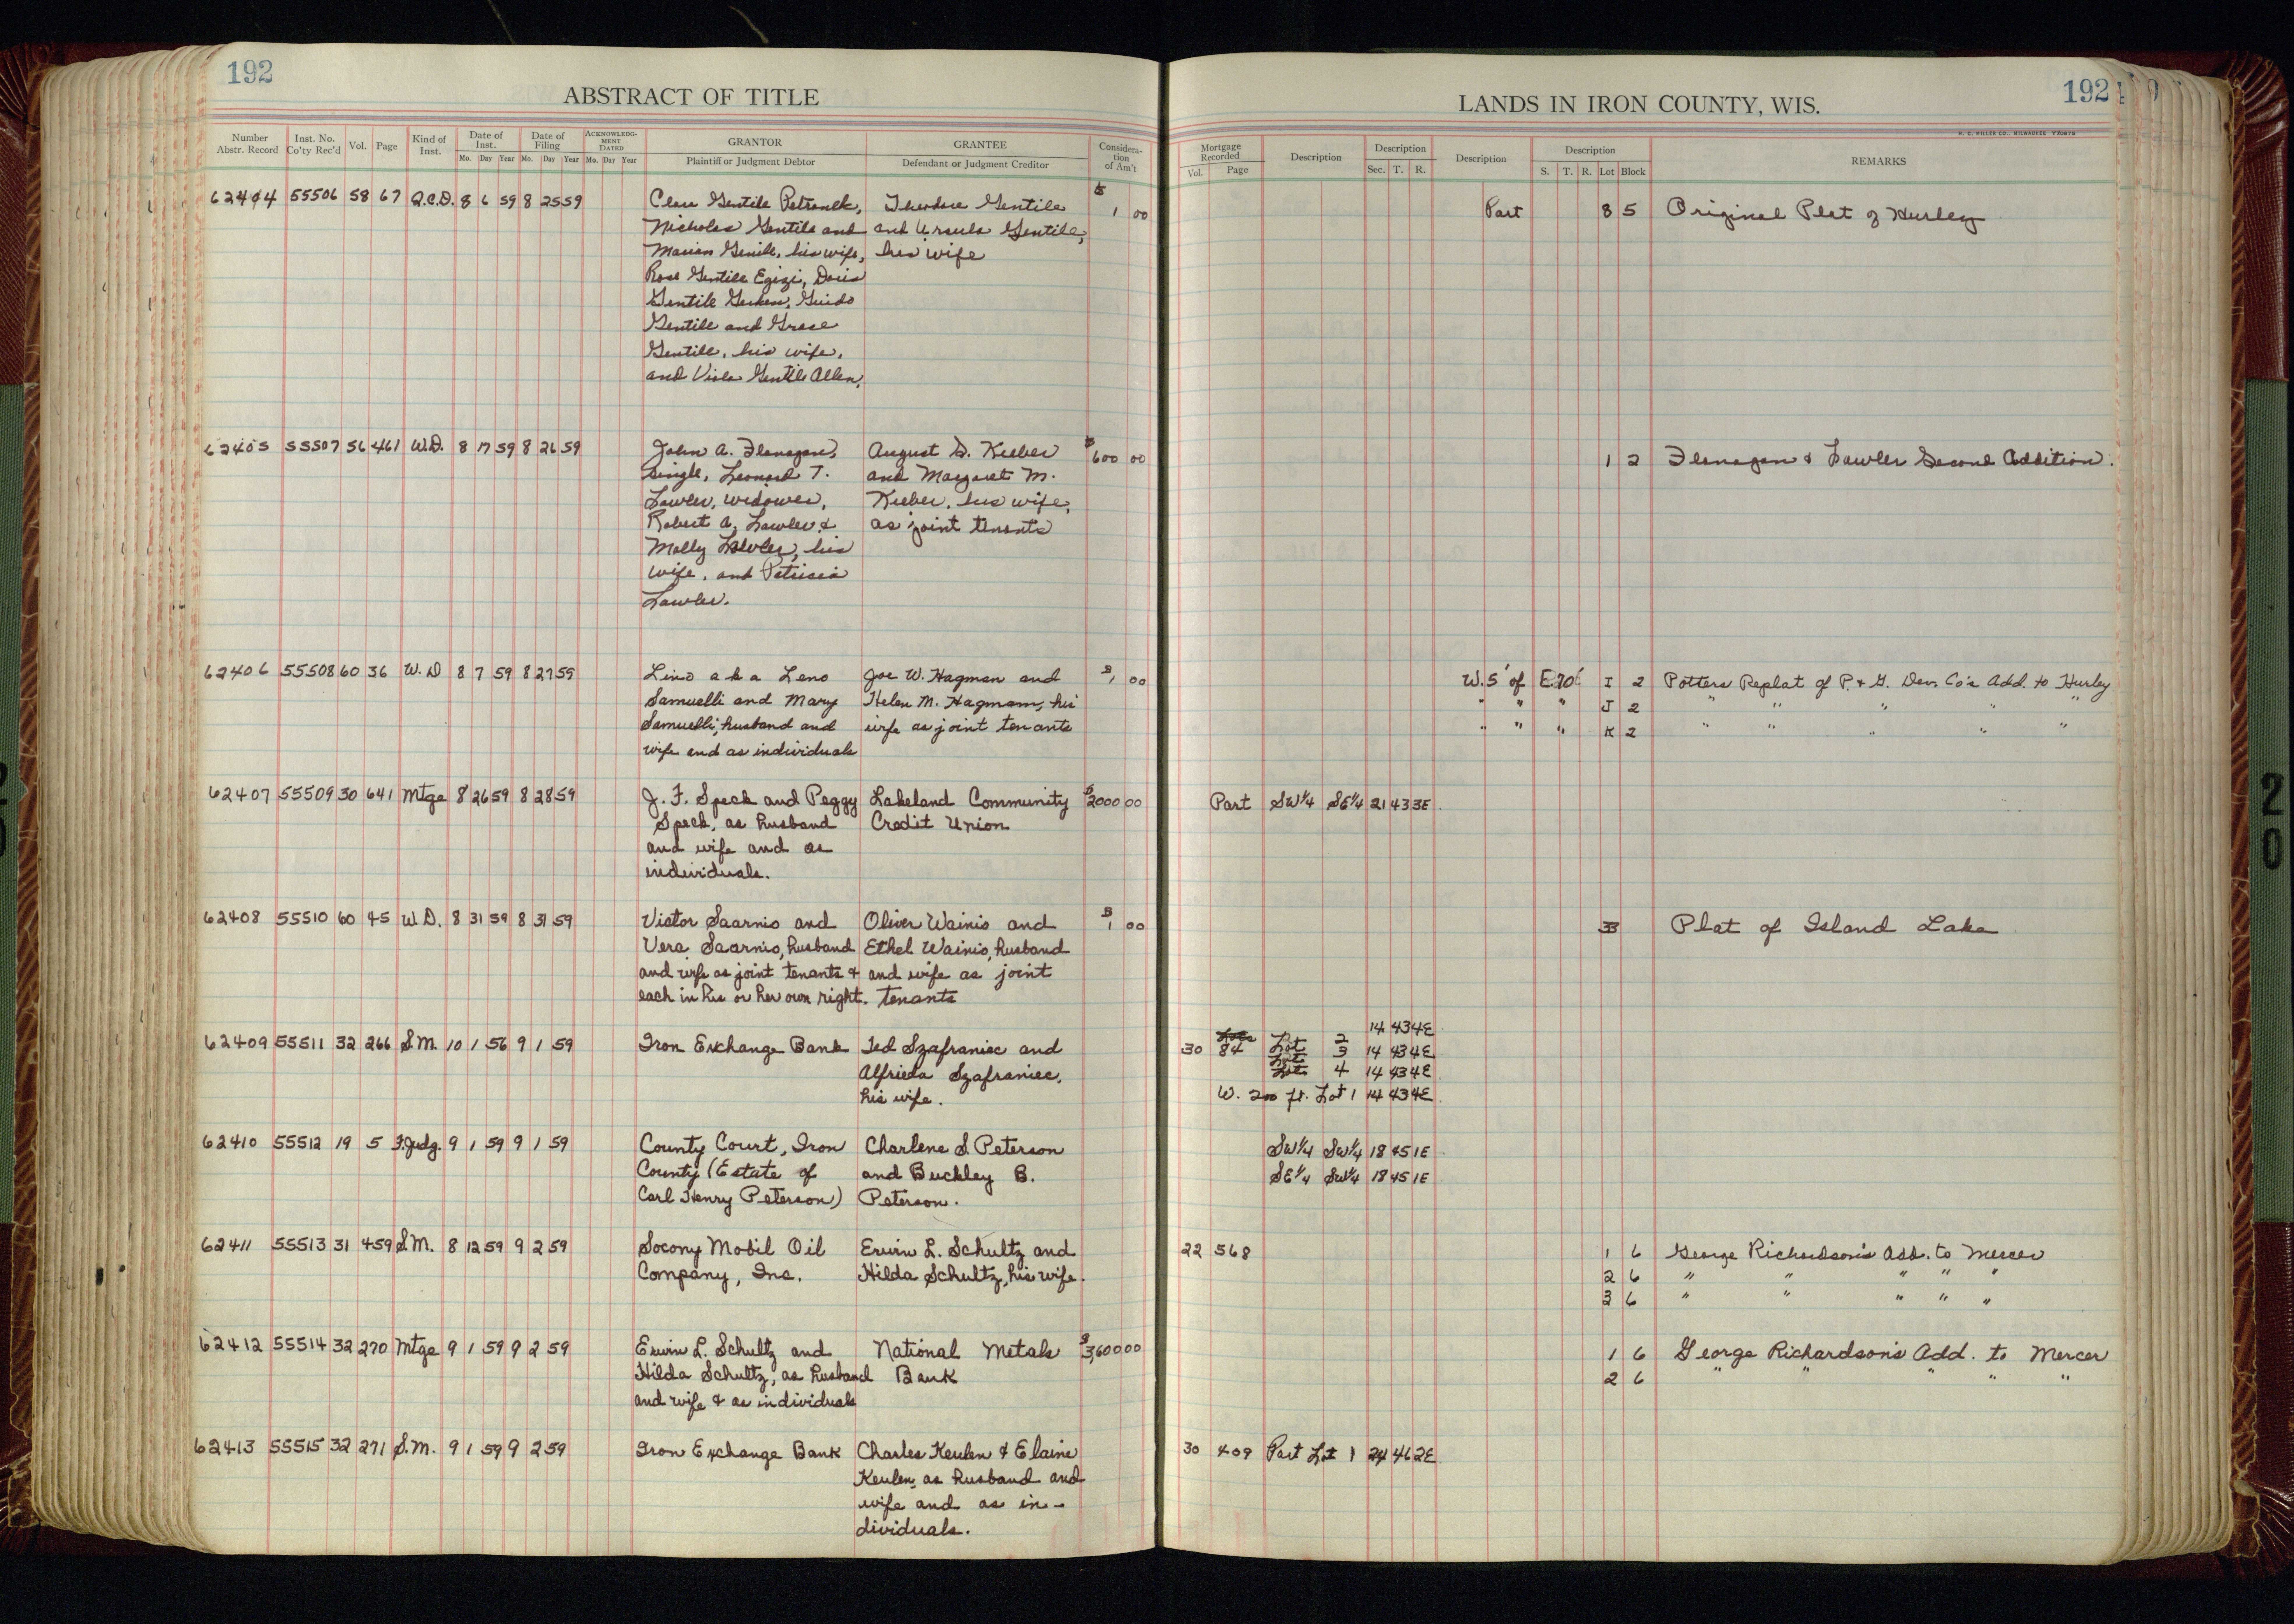 192
ABSTRACT OF TITLE
Number Abstr. Record Inst. No. Co'ty Rec'd Vol. Page Kind of Inst. Date of Inst. Mo. Day Year Date of Filing Mo. Day Year ACKNOWLEDGMENT DATED Mo. Day Year GRANTOR Plaintiff or Judgment Debtor GRANTEE Defendant or Judgment Creditor Consideration of Am't
62404 55506 58 67 Q.C.D. 8 6 59 8 25 59 Clara Gentile Petranek, Theodore Gentile $1 00
Nicholas Gentile and and Ursula Gentile,
Marian Gentile, his wife, his wife
Rose Gentile Egizi, Doris
Gentile Gerken, Guido
Gentile and Grace
Gentile, his wife,
and Viola Gentile Allen.
62405 55507 56 461 W.D. 8 17 59 8 26 59 John A. Flanagan, August G. Kieber $600 00
single, Leonard T. and Margaret M.
Lawler, widower, Kieber, his wife,
Robert A. Lawler & as joint tenants
Molly Lawler, his
wife, and Patricia
Lawler.
62406 55508 60 36 W.D 8 7 59 8 27 59 Lino a k a Leno Joe W. Hagman and $1 00
Samuelli and Mary Helen M. Hagman, his
Samuelli, husband and wife as joint tenants
wife and as individuals
62407 55509 30 641 Mtge 8 26 59 8 28 59 J. F. Speck and Peggy Lakeland Community $2000 00
Speck, as husband Credit Union
and wife and as
individuals.
62408 55510 60 45 W.D. 8 31 59 8 31 59 Victor Saarnio and Oliver Wainio and $1 00
Vera Saarnio, husband Ethel Wainio, husband
and wife as joint tenants & and wife as joint
each in his or her own right. tenants
62409 55511 32 266 S.M. 10 1 56 9 1 59 Iron Exchange Bank Ted Szafraniec and
Alfrieda Szafraniec,
his wife.
62410 55512 19 5 F.Judg. 9 1 59 9 1 59 County Court, Iron Charlene S. Peterson
County (Estate of and Buckley B.
Carl Henry Peterson) Peterson.
62411 55513 31 459 S.M. 8 12 59 9 2 59 Socony Mobil Oil Erwin L. Schultz and
Company, Inc. Hilda Schultz, his wife.
62412 55514 32 270 Mtge 9 1 59 9 2 59 Erwin L. Schultz and National Metals $3,600 00
Hilda Schultz, as husband Bank
and wife & as individuals
62413 55515 32 271 S.M. 9 1 59 9 2 59 Iron Exchange Bank Charles Keulen & Elaine
Keulen, as husband and
wife and as in-
dividuals.
192
LANDS IN IRON COUNTY, WIS.
H. C. MILLER CO., MILWAUKEE
Mortgage Recorded Vol. Page Description Description Sec. T. R. Description Description S. T. R. Lot Block REMARKS
Part 8 5 Original Plat of Hurley
1 2 Flanagan & Lawler Second Addition.
W. 5' of E. 70' I 2 Potters Replat of P. & G. Dev. Co's Add. to Hurley
" " " J 2 " " " " "
" " " K 2 " " " " "
Part SW¼ SE¼ 21 43 3E
33 Plat of Island Lake
2 14 43 4E
30 84 Lot 3 14 43 4E
Lot 4 14 43 4E
W. 200 ft. Lot 1 14 43 4E
SW¼ SW¼ 18 45 1E
SE¼ SW¼ 18 45 1E
22 568 1 6 George Richardson's Add. to Mercer
2 6 " " " " "
3 6 " " " " "
1 6 George Richardson's Add. to Mercer
2 6 " " " " "
30 409 Part Lot 1 24 46 2E
2
0